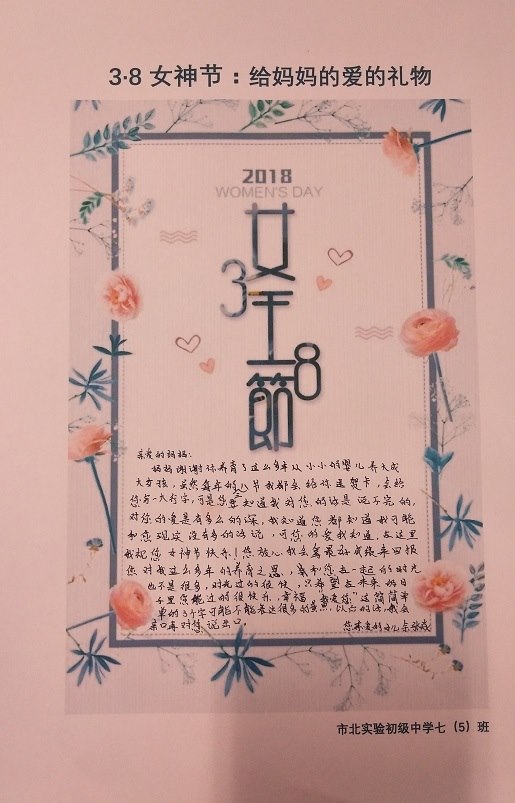 3·8 女神节：给妈妈的爱的礼物
2018
WOMEN'S DAY
3
女王節
8
亲爱的妈妈：
妈妈谢谢你养育了这么多年从小小的婴儿养大成
大女孩，虽然每年的三八节我都会给你送贺卡，会给
您写一大堆字，可是您要知道我对您的话是说不完的，
对你的爱是有多么的深，我知道您都知道我可能
和您现在没有多的话说，可您的爱我知道，在这里
我祝您女神节快乐！您放心我会拿最好成绩来回报
您对我这么多年的养育之恩，我和您在一起的时光
也不是很多，对光过的很快，只希望在未来的日
子里您能过的很快乐，幸福，“我爱您”这简简单
单的3个字可能不能表达很多的意思，以后的话，我会
亲口再对您说出口。
您亲爱的女儿
市北实验初级中学七（5）班